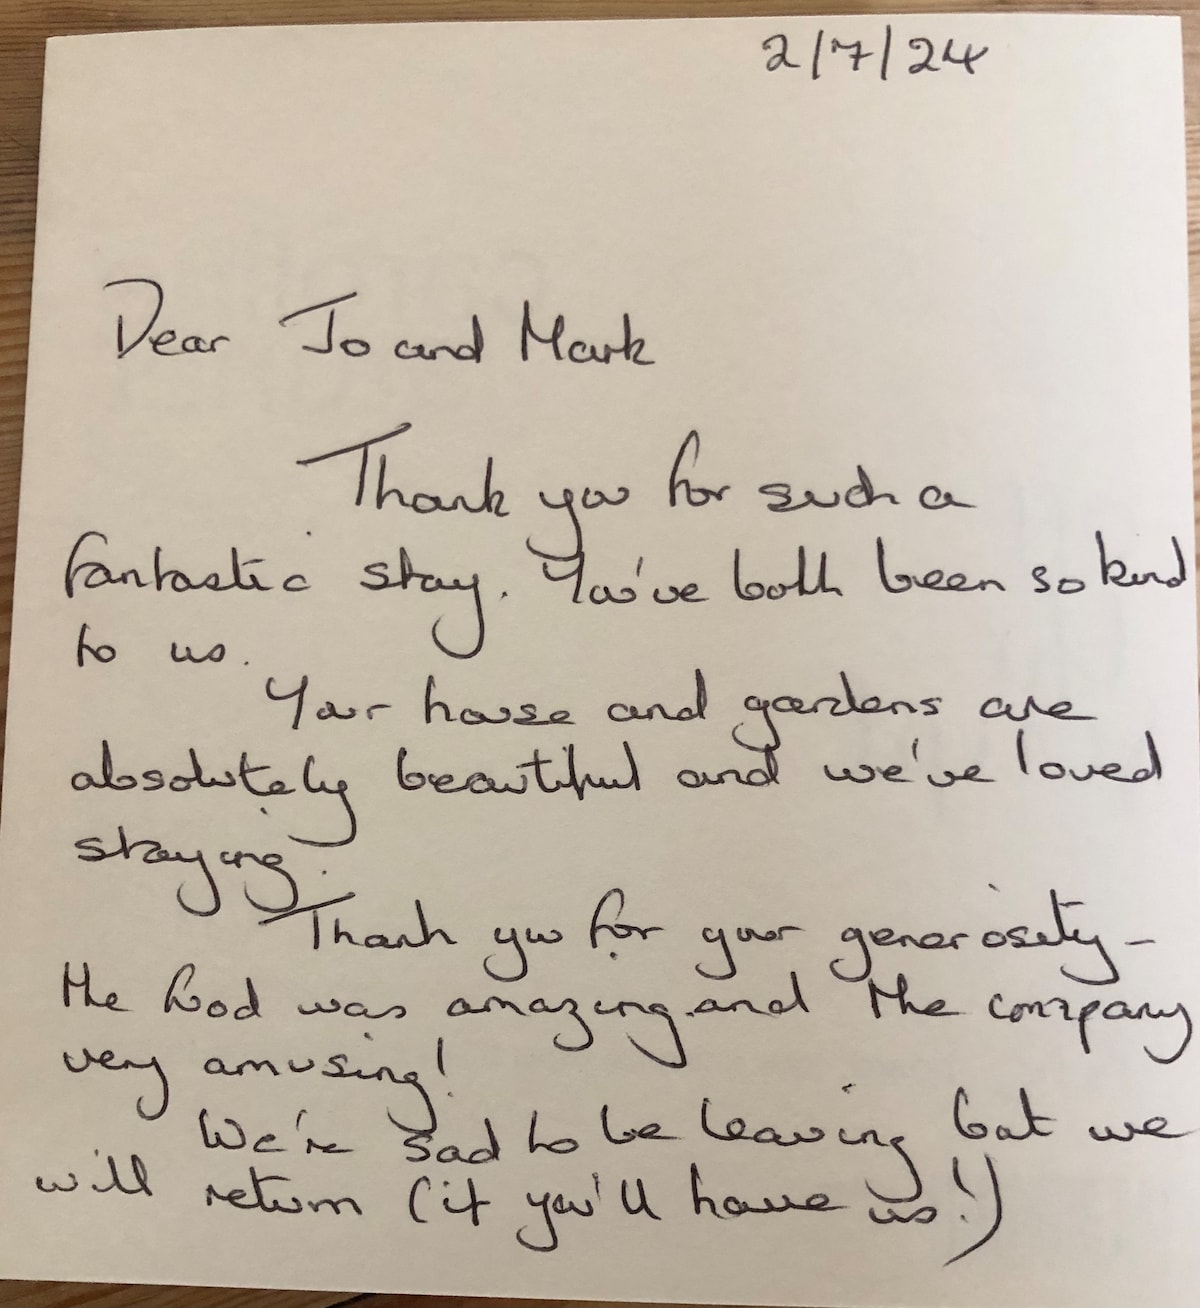 2/7/24
Dear Jo and Mark
Thank you for such a
fantastic stay. You've both been so kind
to us.
Your house and gardens are
absolutely beautiful and we've loved
staying.
Thank you for your generosity -
the food was amazing and the company
very amusing!
We're sad to be leaving but we
will return (if you'll have us!)